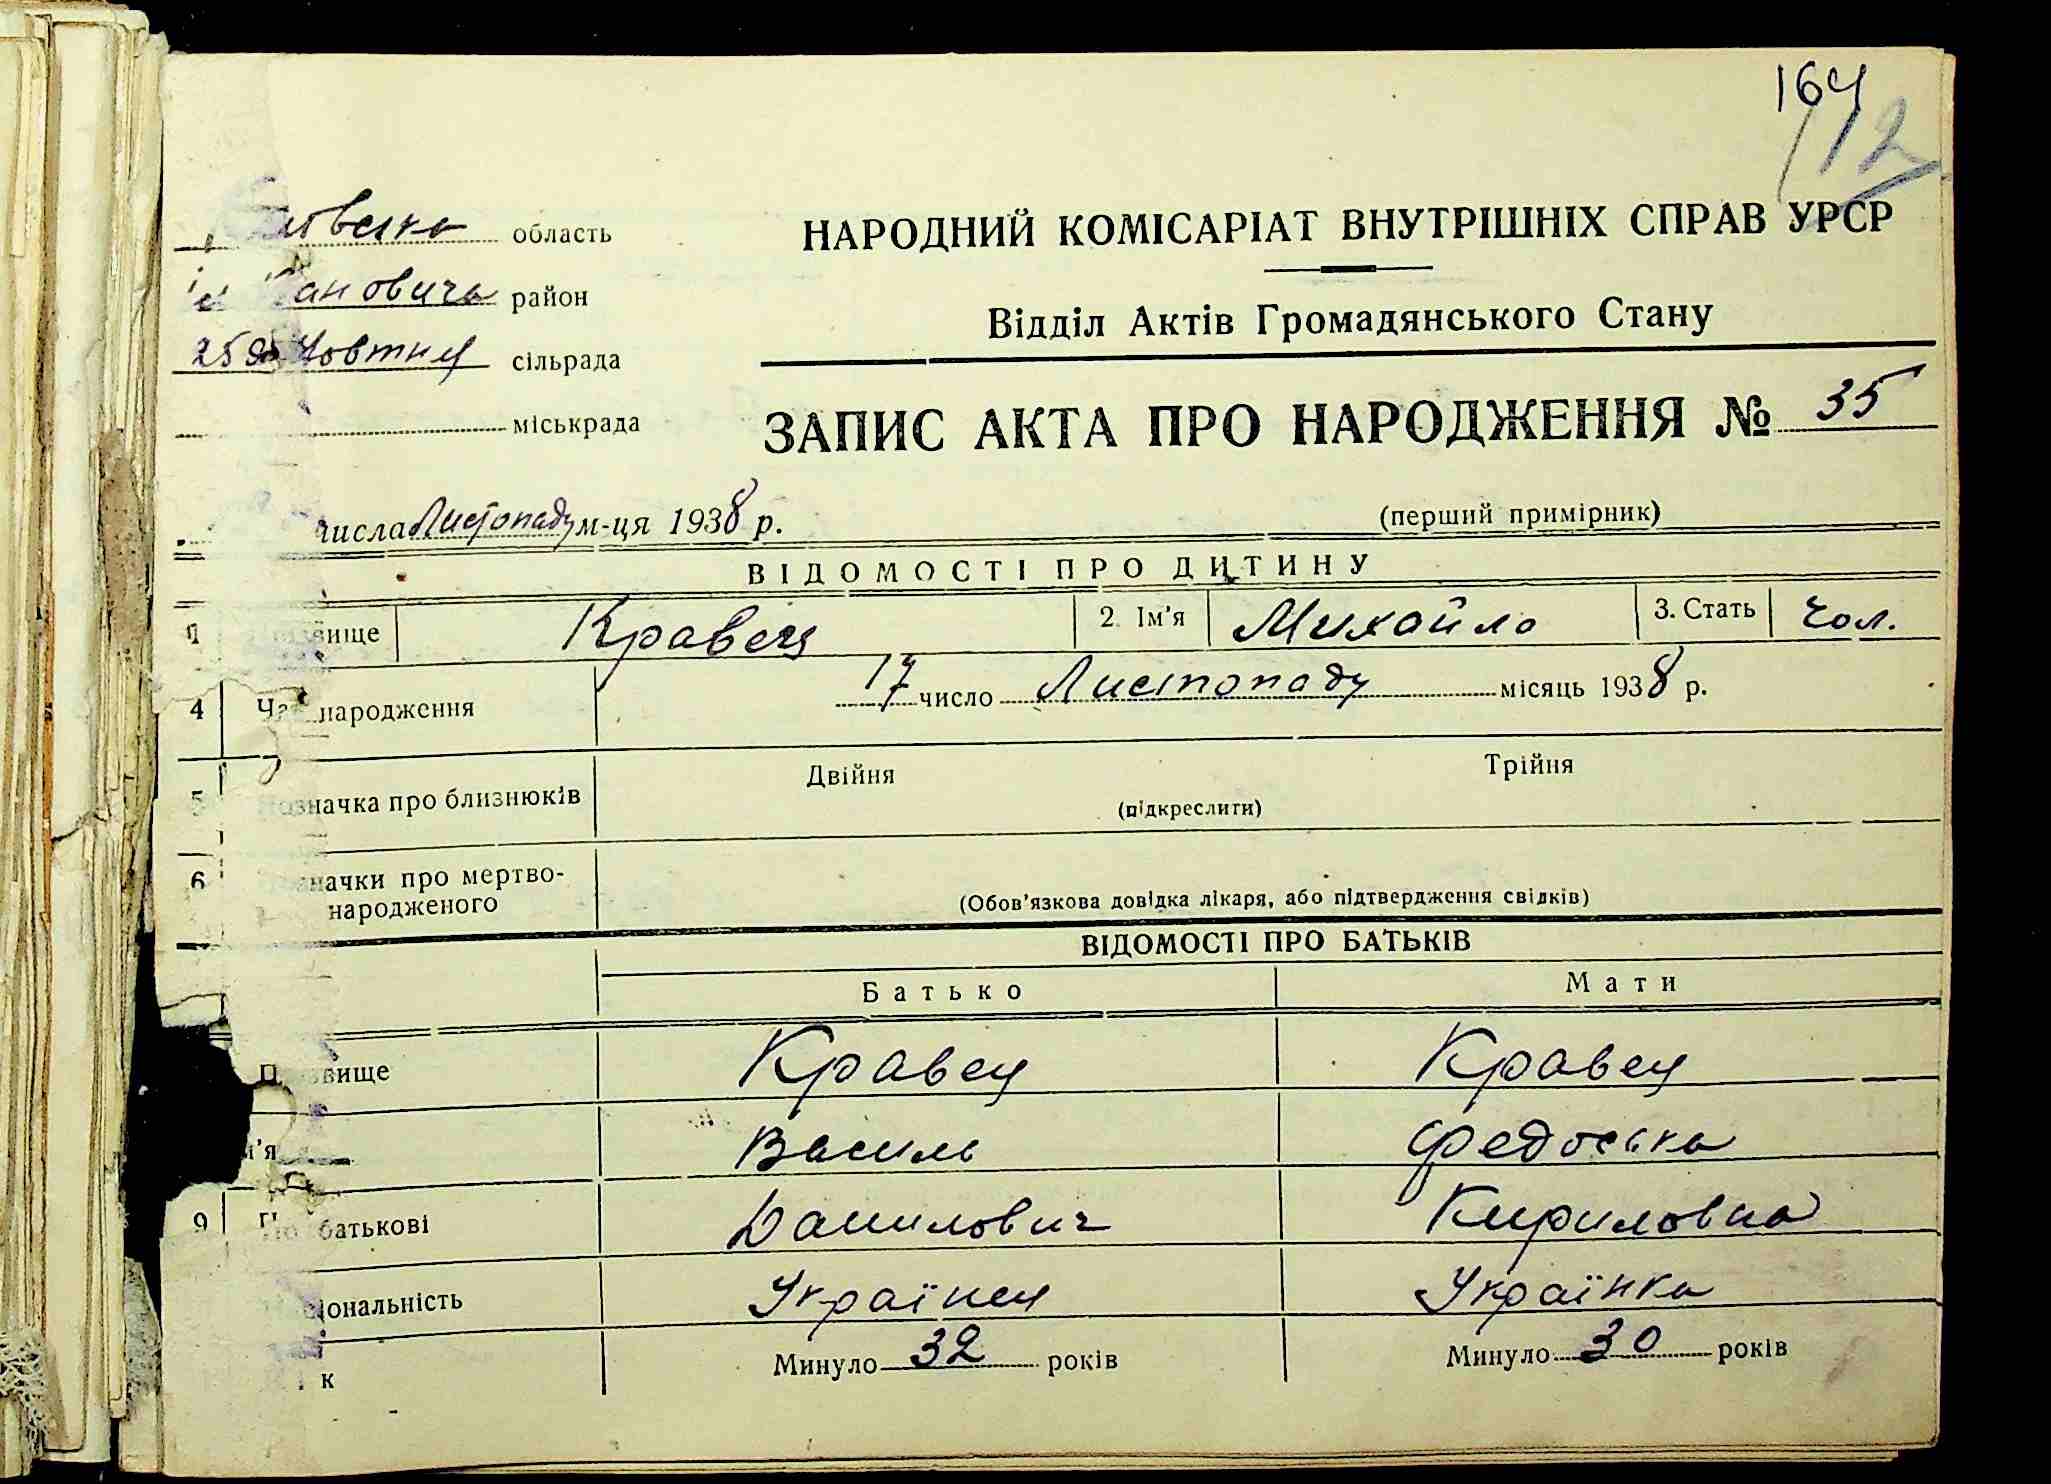 164
12
область
район
25 Жовтня сільрада
міськрада
НАРОДНИЙ КОМІСАРІАТ ВНУТРІШНІХ СПРАВ УРСР
Відділ Актів Громадянського Стану
ЗАПИС АКТА ПРО НАРОДЖЕННЯ № 35
числа Листопаду м-ця 1938 р.
(перший примірник)
ВІДОМОСТІ ПРО ДИТИНУ
Кравець 2. Ім'я Михайло 3. Стать Чол.
4 народження 17 число Листопаду місяць 1938 р.
Двійня Трійня
5 про близнюків (підкреслити)
6 про мертво-
народженого (Обов'язкова довідка лікаря, або підтвердження свідків)
ВІДОМОСТІ ПРО БАТЬКІВ
Батько Мати
Кравец Кравец
Василь Федоська
9 батькові Данилович Кириловна
Українец Українка
Минуло 32 років Минуло 30 років